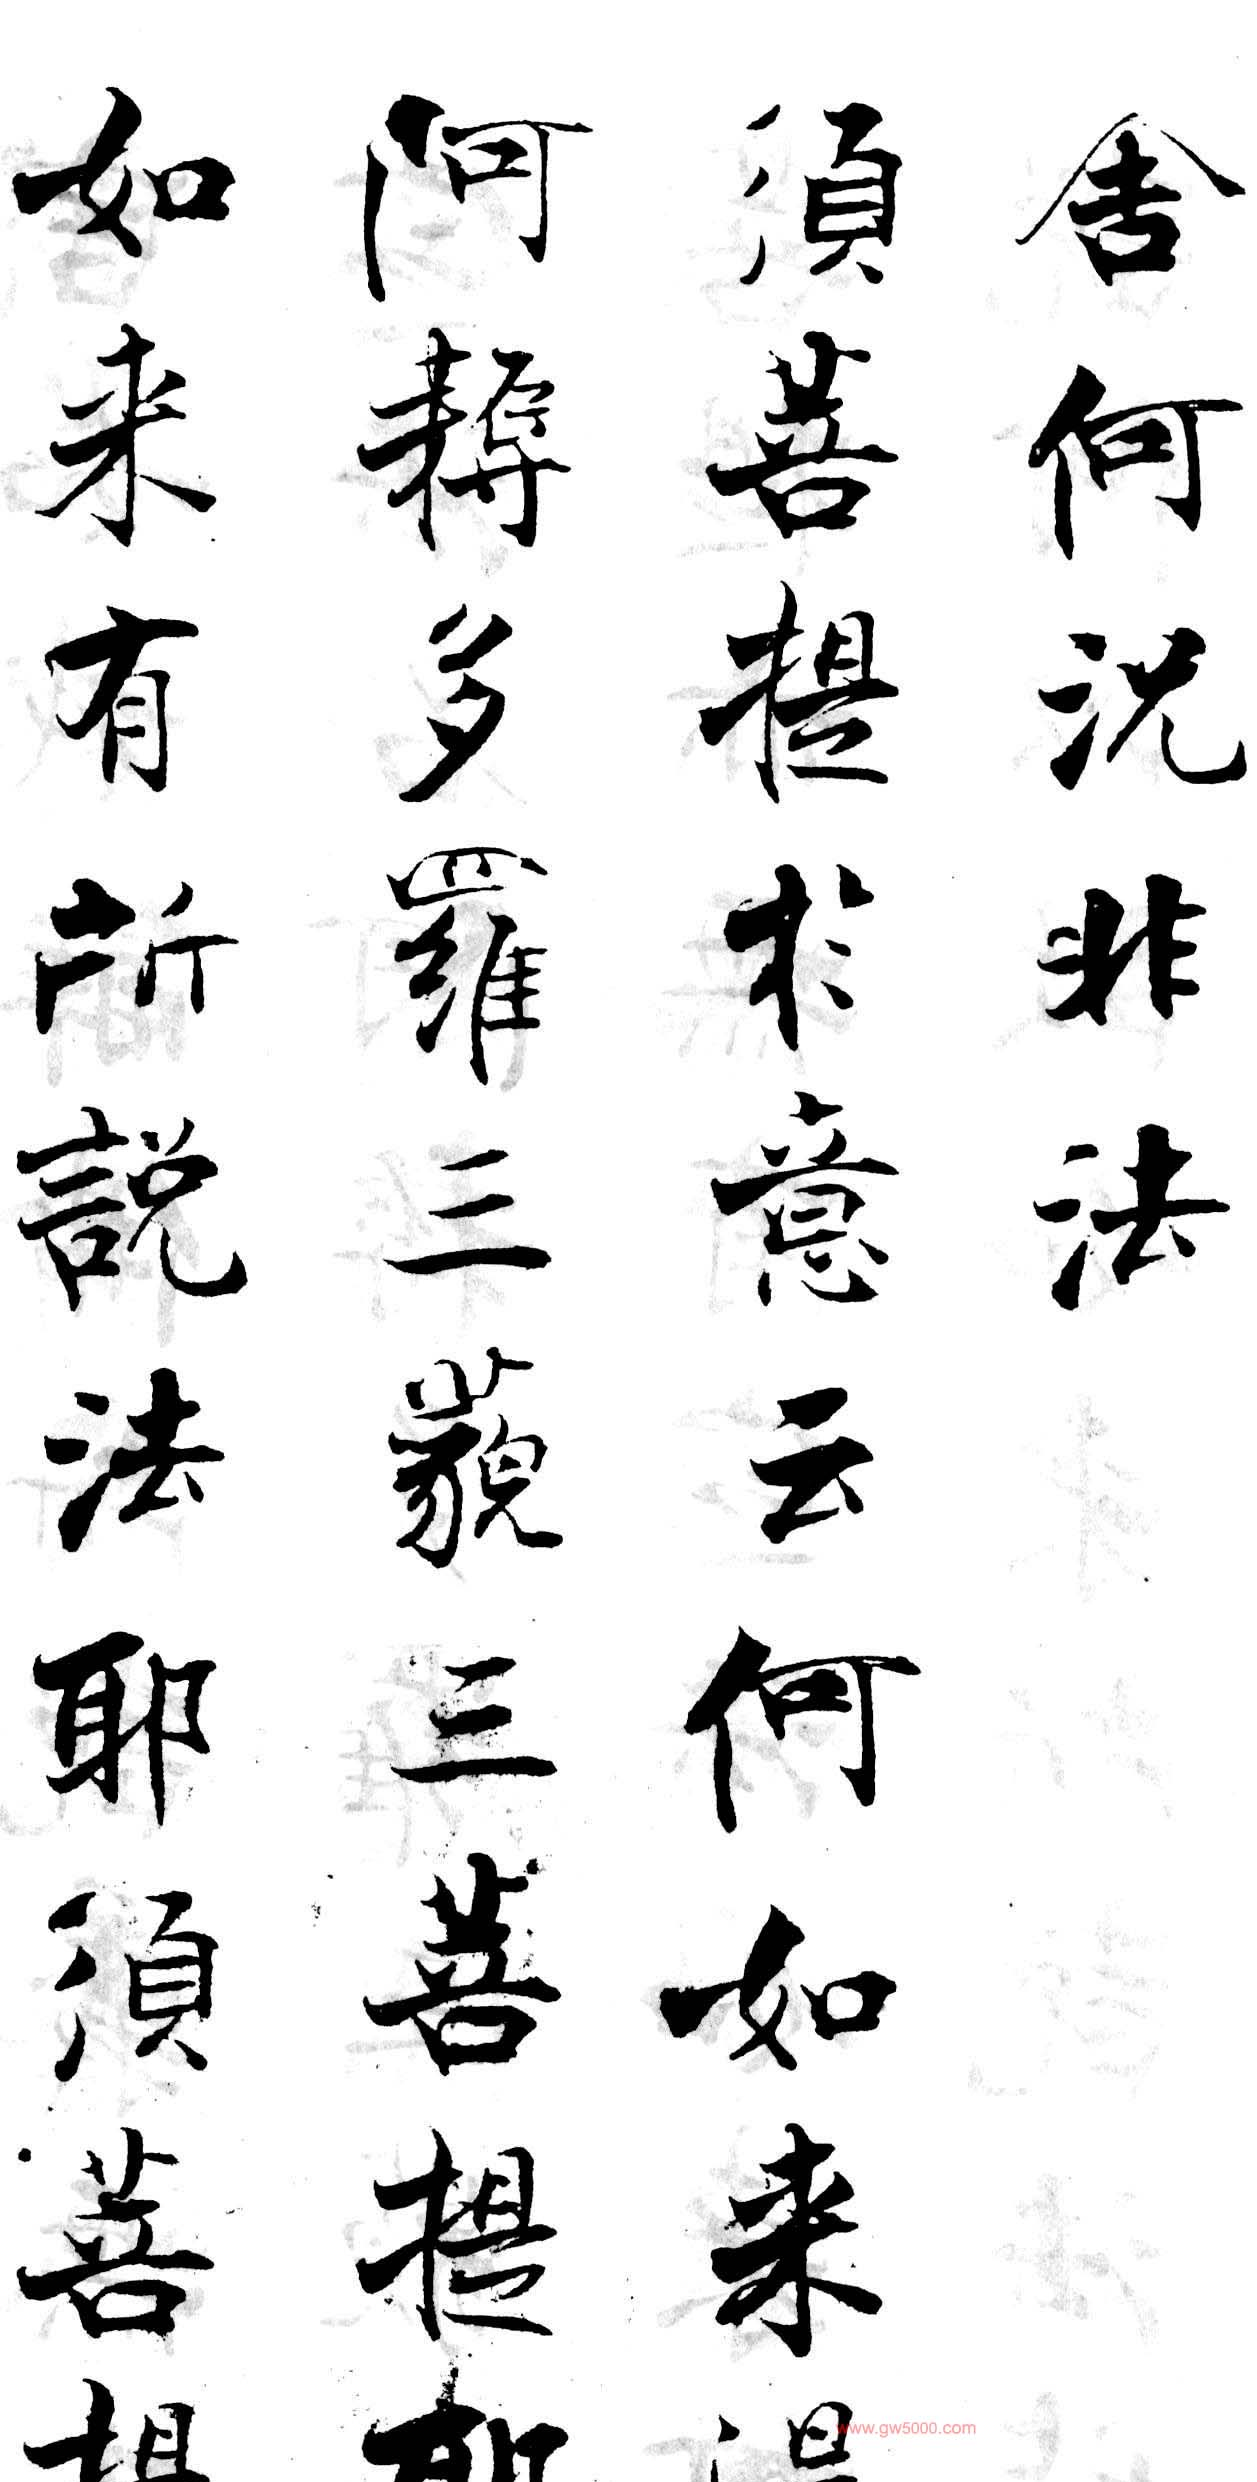 舍何況非法
須菩提於意云何如来得
阿耨多羅三藐三菩提耶
如来有所說法耶須菩提
www.gw5000.com